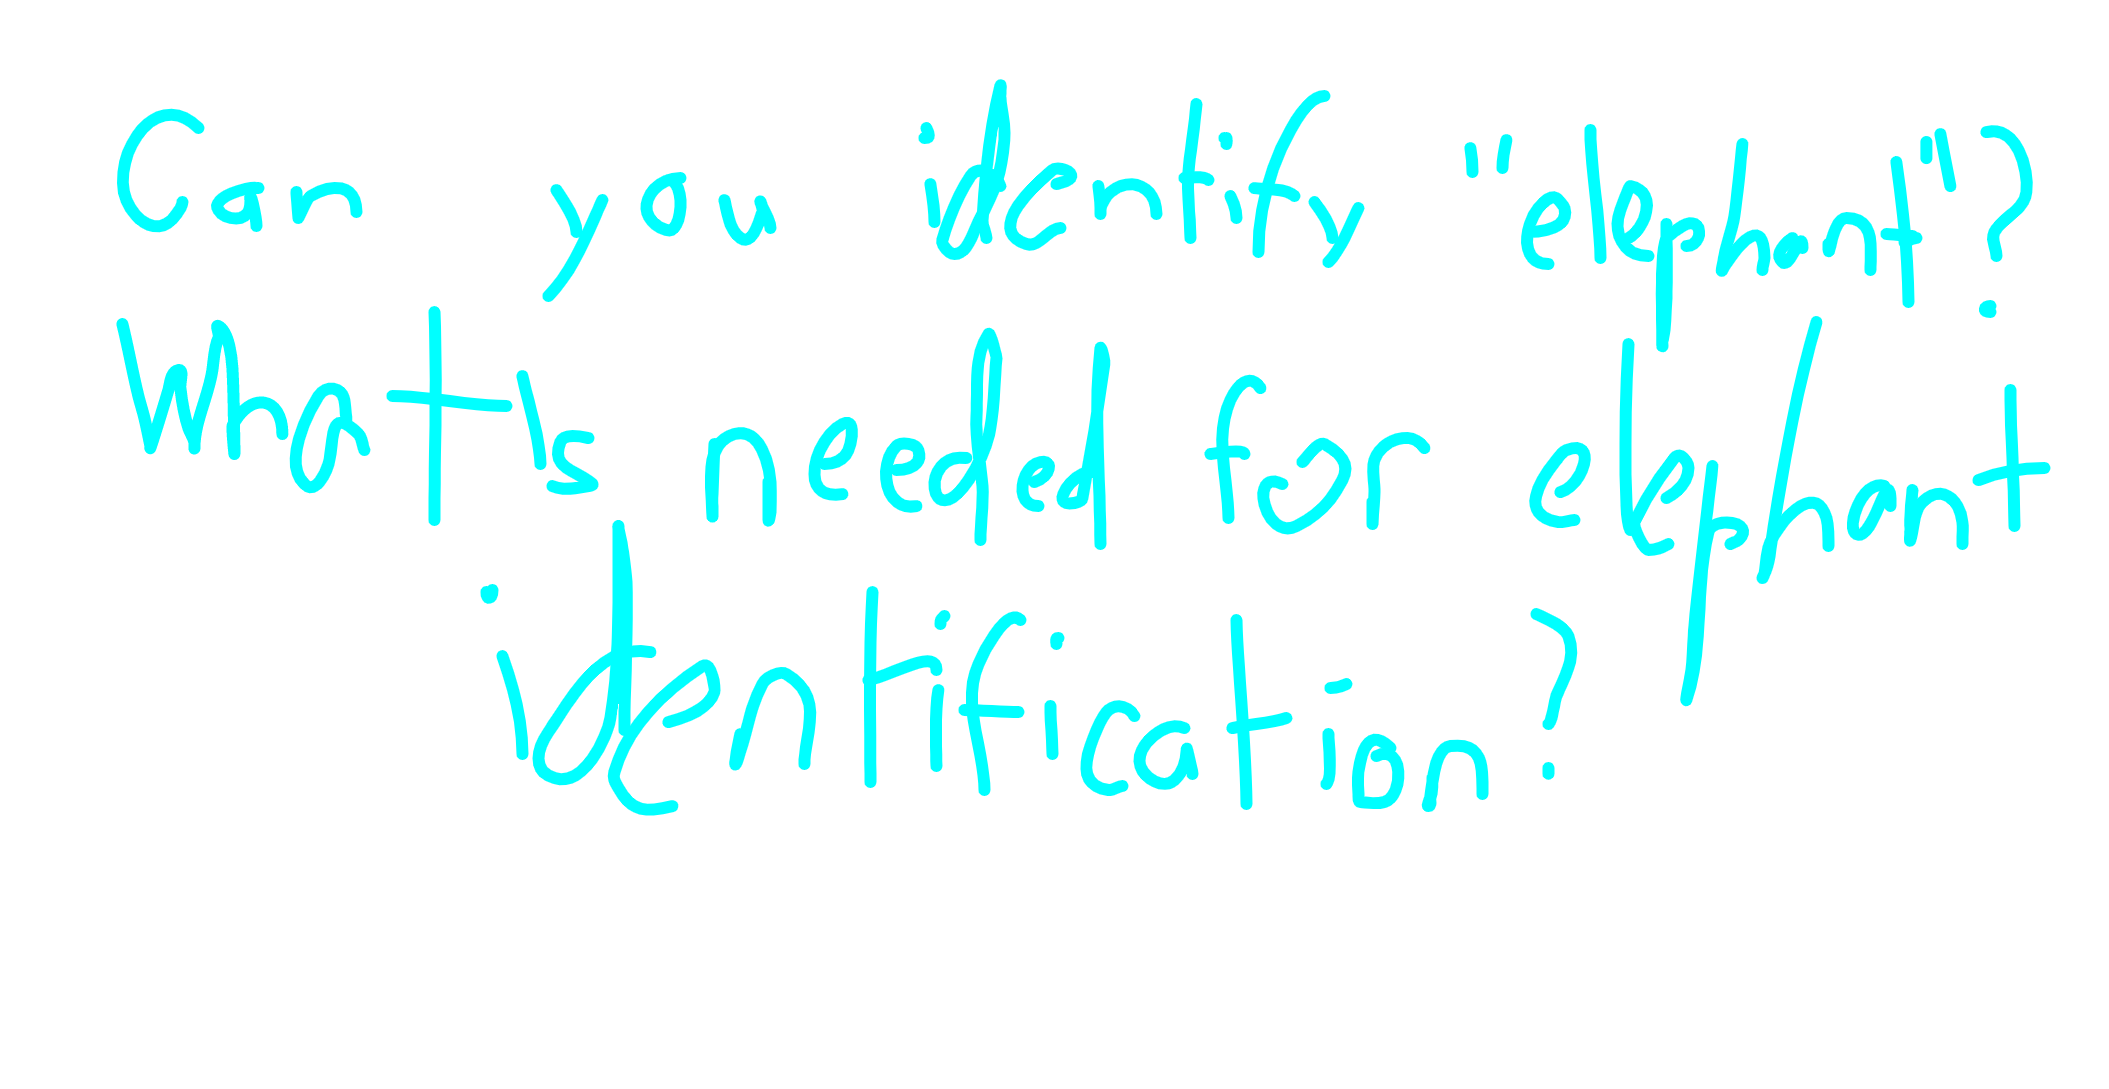 Can you identify "elephant"?
What's needed for elephant
identification?